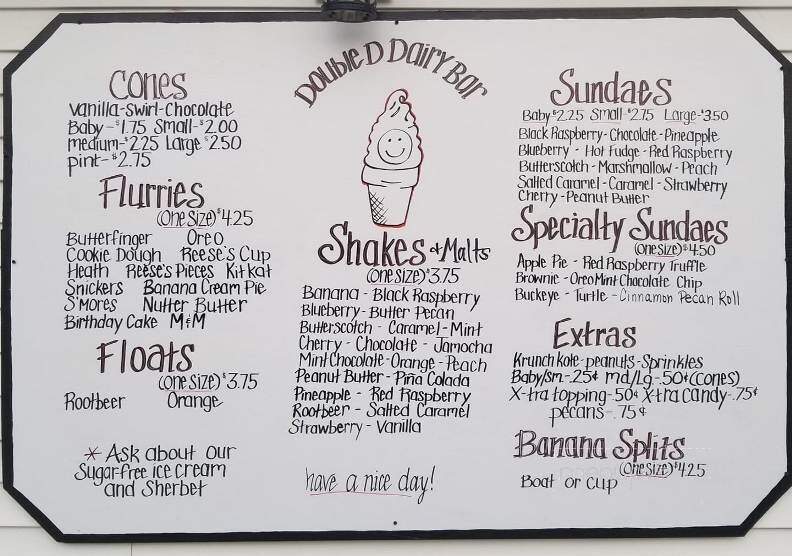 Double D Dairy Bar
Cones
Vanilla-Swirl-Chocolate
Baby-$1.75 Small-$2.00
medium-$2.25 Large $2.50
pint-$2.75
Flurries
(One Size) $4.25
Butterfinger Oreo
Cookie Dough Reese's Cup
Heath Reese's Pieces Kitkat
Snickers Banana Cream Pie
S'mores Nutter Butter
Birthday Cake M&M
Floats
(One Size) $3.75
Rootbeer Orange
* Ask about our
Sugar-free ice cream
and Sherbet
Shakes & Malts
(One Size) $3.75
Banana - Black Raspberry
Blueberry - Butter Pecan
Butterscotch - Caramel - Mint
Cherry - Chocolate - Jamocha
Mint Chocolate - Orange - Peach
Peanut Butter - Piña Colada
Pineapple - Red Raspberry
Rootbeer - Salted Caramel
Strawberry - Vanilla
have a nice day!
Sundaes
Baby $2.25 Small-$2.75 Large-$3.50
Black Raspberry - Chocolate - Pineapple
Blueberry - Hot Fudge - Red Raspberry
Butterscotch - Marshmallow - Peach
Salted Caramel - Caramel - Strawberry
Cherry - Peanut Butter
Specialty Sundaes
(One Size) $4.50
Apple Pie - Red Raspberry Truffle
Brownie - Oreo Mint Chocolate Chip
Buckeye - Turtle - Cinnamon Pecan Roll
Extras
Krunch Kote - peanuts - Sprinkles
Baby/sm - .25¢ md/Lg - .50¢ (cones)
X-tra topping - .50¢ X-tra candy - .75¢
pecans - .75¢
Banana Splits
(One Size) $4.25
Boat or Cup